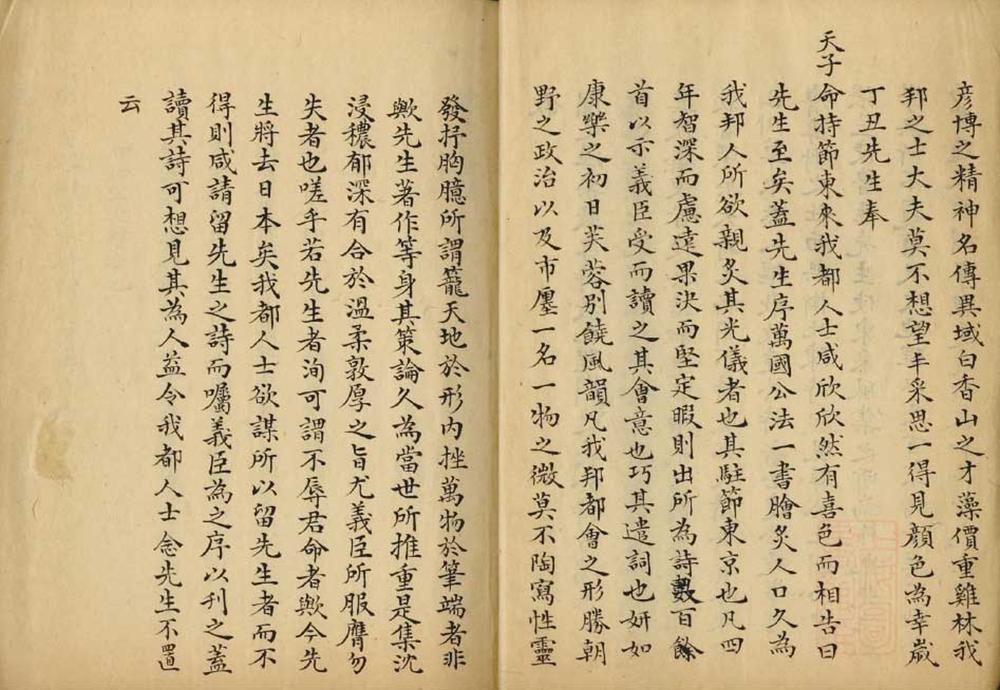 彦博之精神名傳異域白香山之才藻價重雞林我
邦之士大夫莫不想望丰采思一得見顔色為幸歲
丁丑先生奉
天子命持節東來我都人士咸欣欣然有喜色而相告曰
先生至矣蓋先生序萬國公法一書膾炙人口久為
我邦人所欲親炙其光儀者也其駐節東京也凡四
年智深而慮遠果決而堅定暇則出所為詩數百餘
首以示義臣受而讀之其會意也巧其遣詞也妍如
康樂之初日芙蓉別饒風韻凡我邦都會之形勝朝
野之政治以及市廛一名一物之微莫不陶寫性靈
發抒胸臆所謂籠天地於形內挫萬物於筆端者非
歟先生著作等身其策論久為當世所推重是集沈
浸穠郁深有合於溫柔敦厚之旨尤義臣所服膺勿
失者也嗟乎若先生者洵可謂不辱君命者歟今先
生將去日本矣我都人士欲謀所以留先生者而不
得則咸請留先生之詩而囑義臣為之序以刊之蓋
讀其詩可想見其為人益令我都人士念先生不置
云